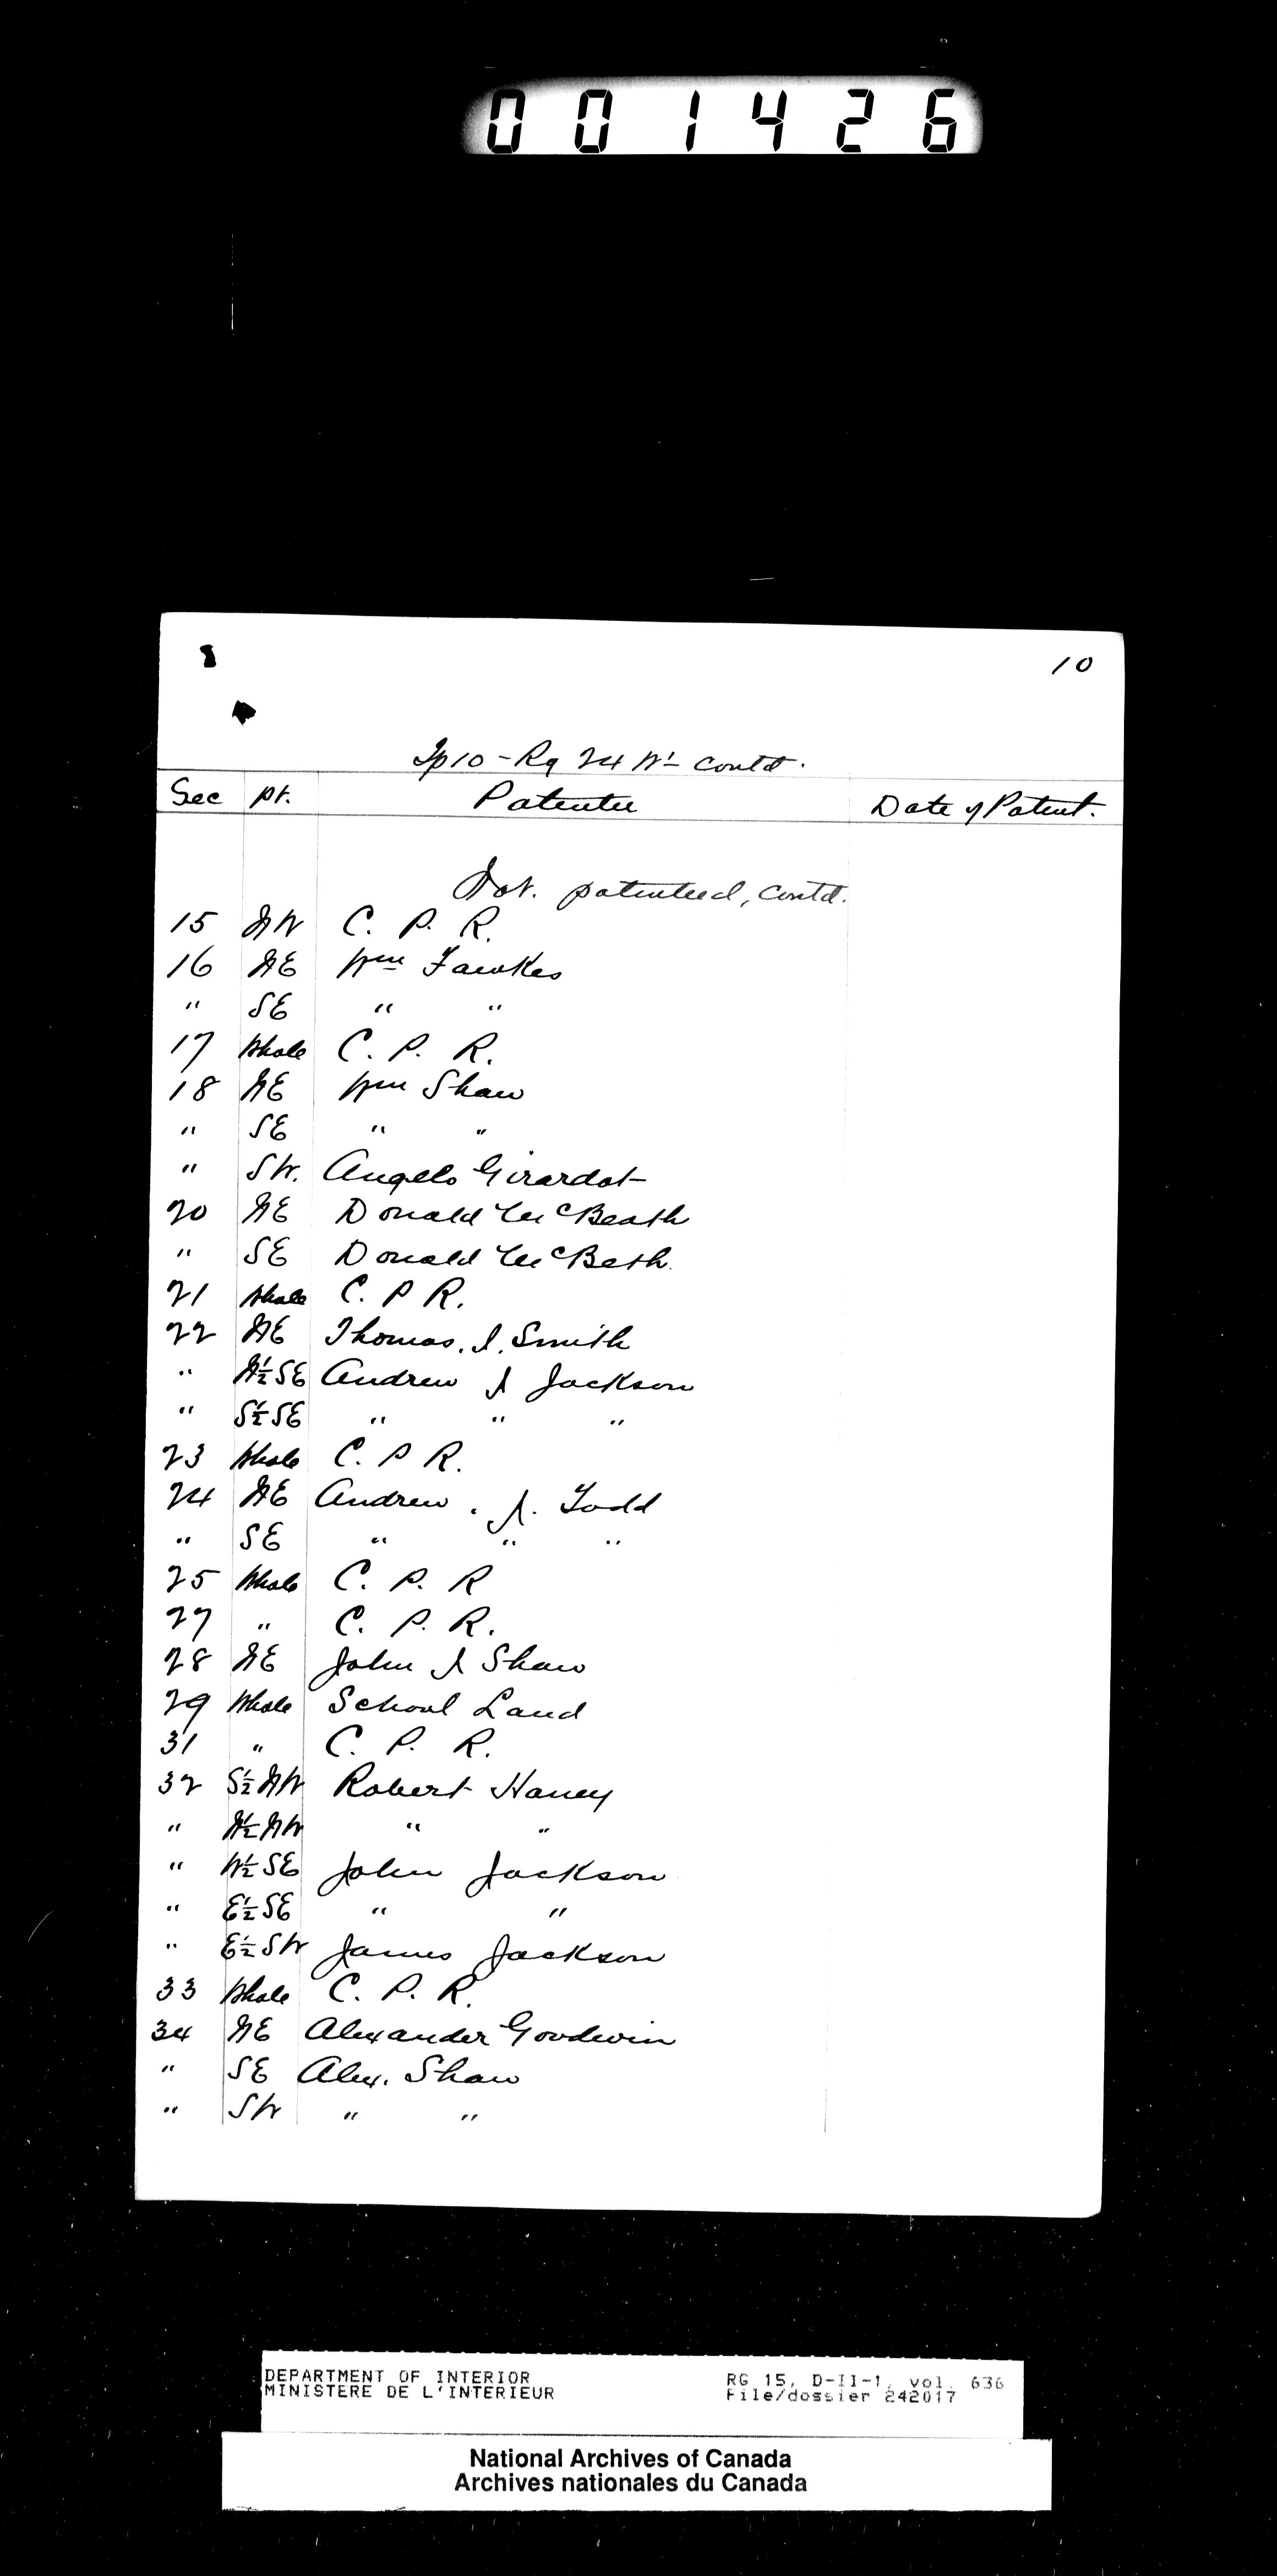 001426
10
Tp 10 - Rg 24 W1 contd.
Sec pt. Patentee Date of Patent.
Not patented, contd.
15 NW C. P. R.
16 NE Wm Fawkes
" SE " "
17 Whole C. P. R.
18 NE Wm Shaw
" SE " "
" SW. Angelo Girardot
20 NE Donald McBeath
" SE Donald McBeth.
21 Whole C. P R.
22 NE Thomas. J. Smith
" N½SE Andrew J Jackson
" S½SE " " "
23 Whole C. P R.
24 NE Andrew . J. Todd
" SE " " "
25 Whole C. P. R
27 " C. P. R.
28 NE John J Shaw
29 Whole School Land
31 " C. P. R.
32 S½NW Robert Haney
" N½NW " "
" W½SE John Jackson
" E½SE " "
" E½SW James Jackson
33 Whole C. P. R.
34 NE Alexander Goodwin
" SE Alex. Shaw
" SW " "
DEPARTMENT OF INTERIOR RG 15, D-II-1, vol. 636
MINISTERE DE L'INTERIEUR File/dossier 242017
National Archives of Canada
Archives nationales du Canada